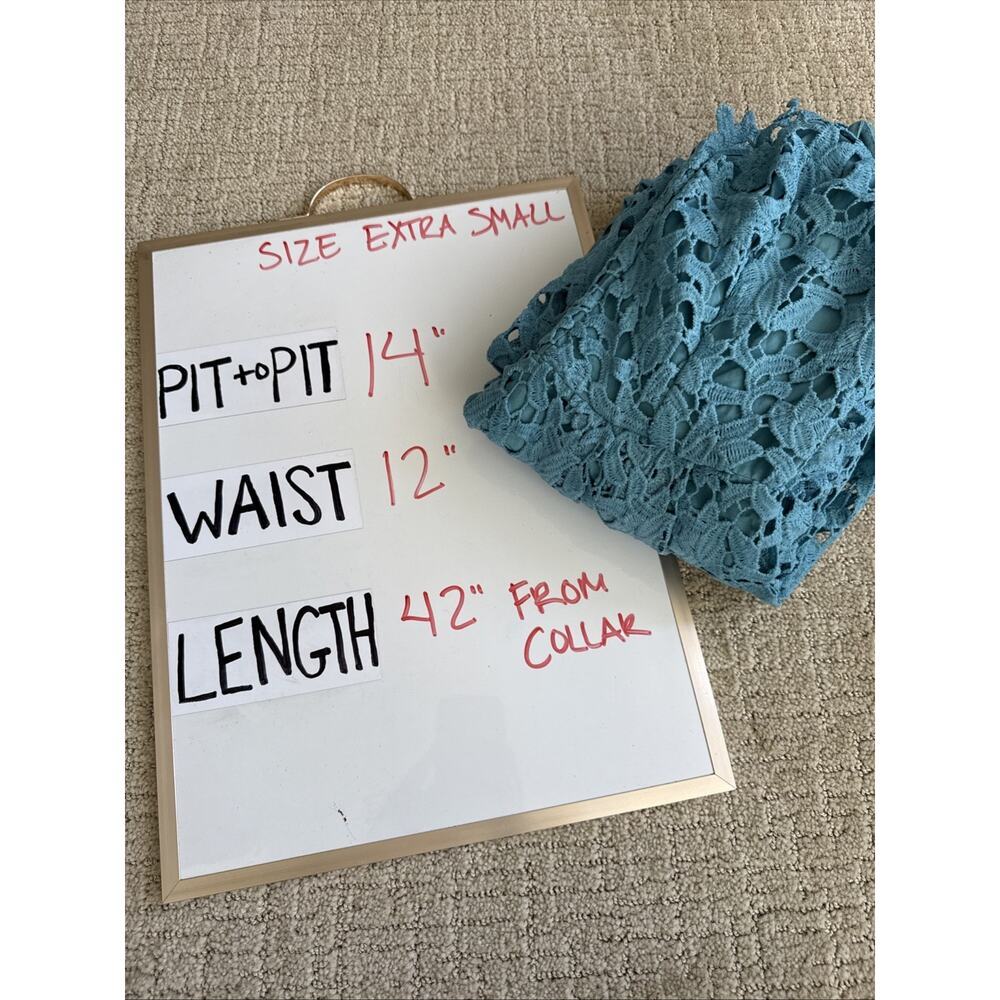 SIZE EXTRA SMALL
PIT to PIT 14"
WAIST 12"
LENGTH 42" FROM
COLLAR